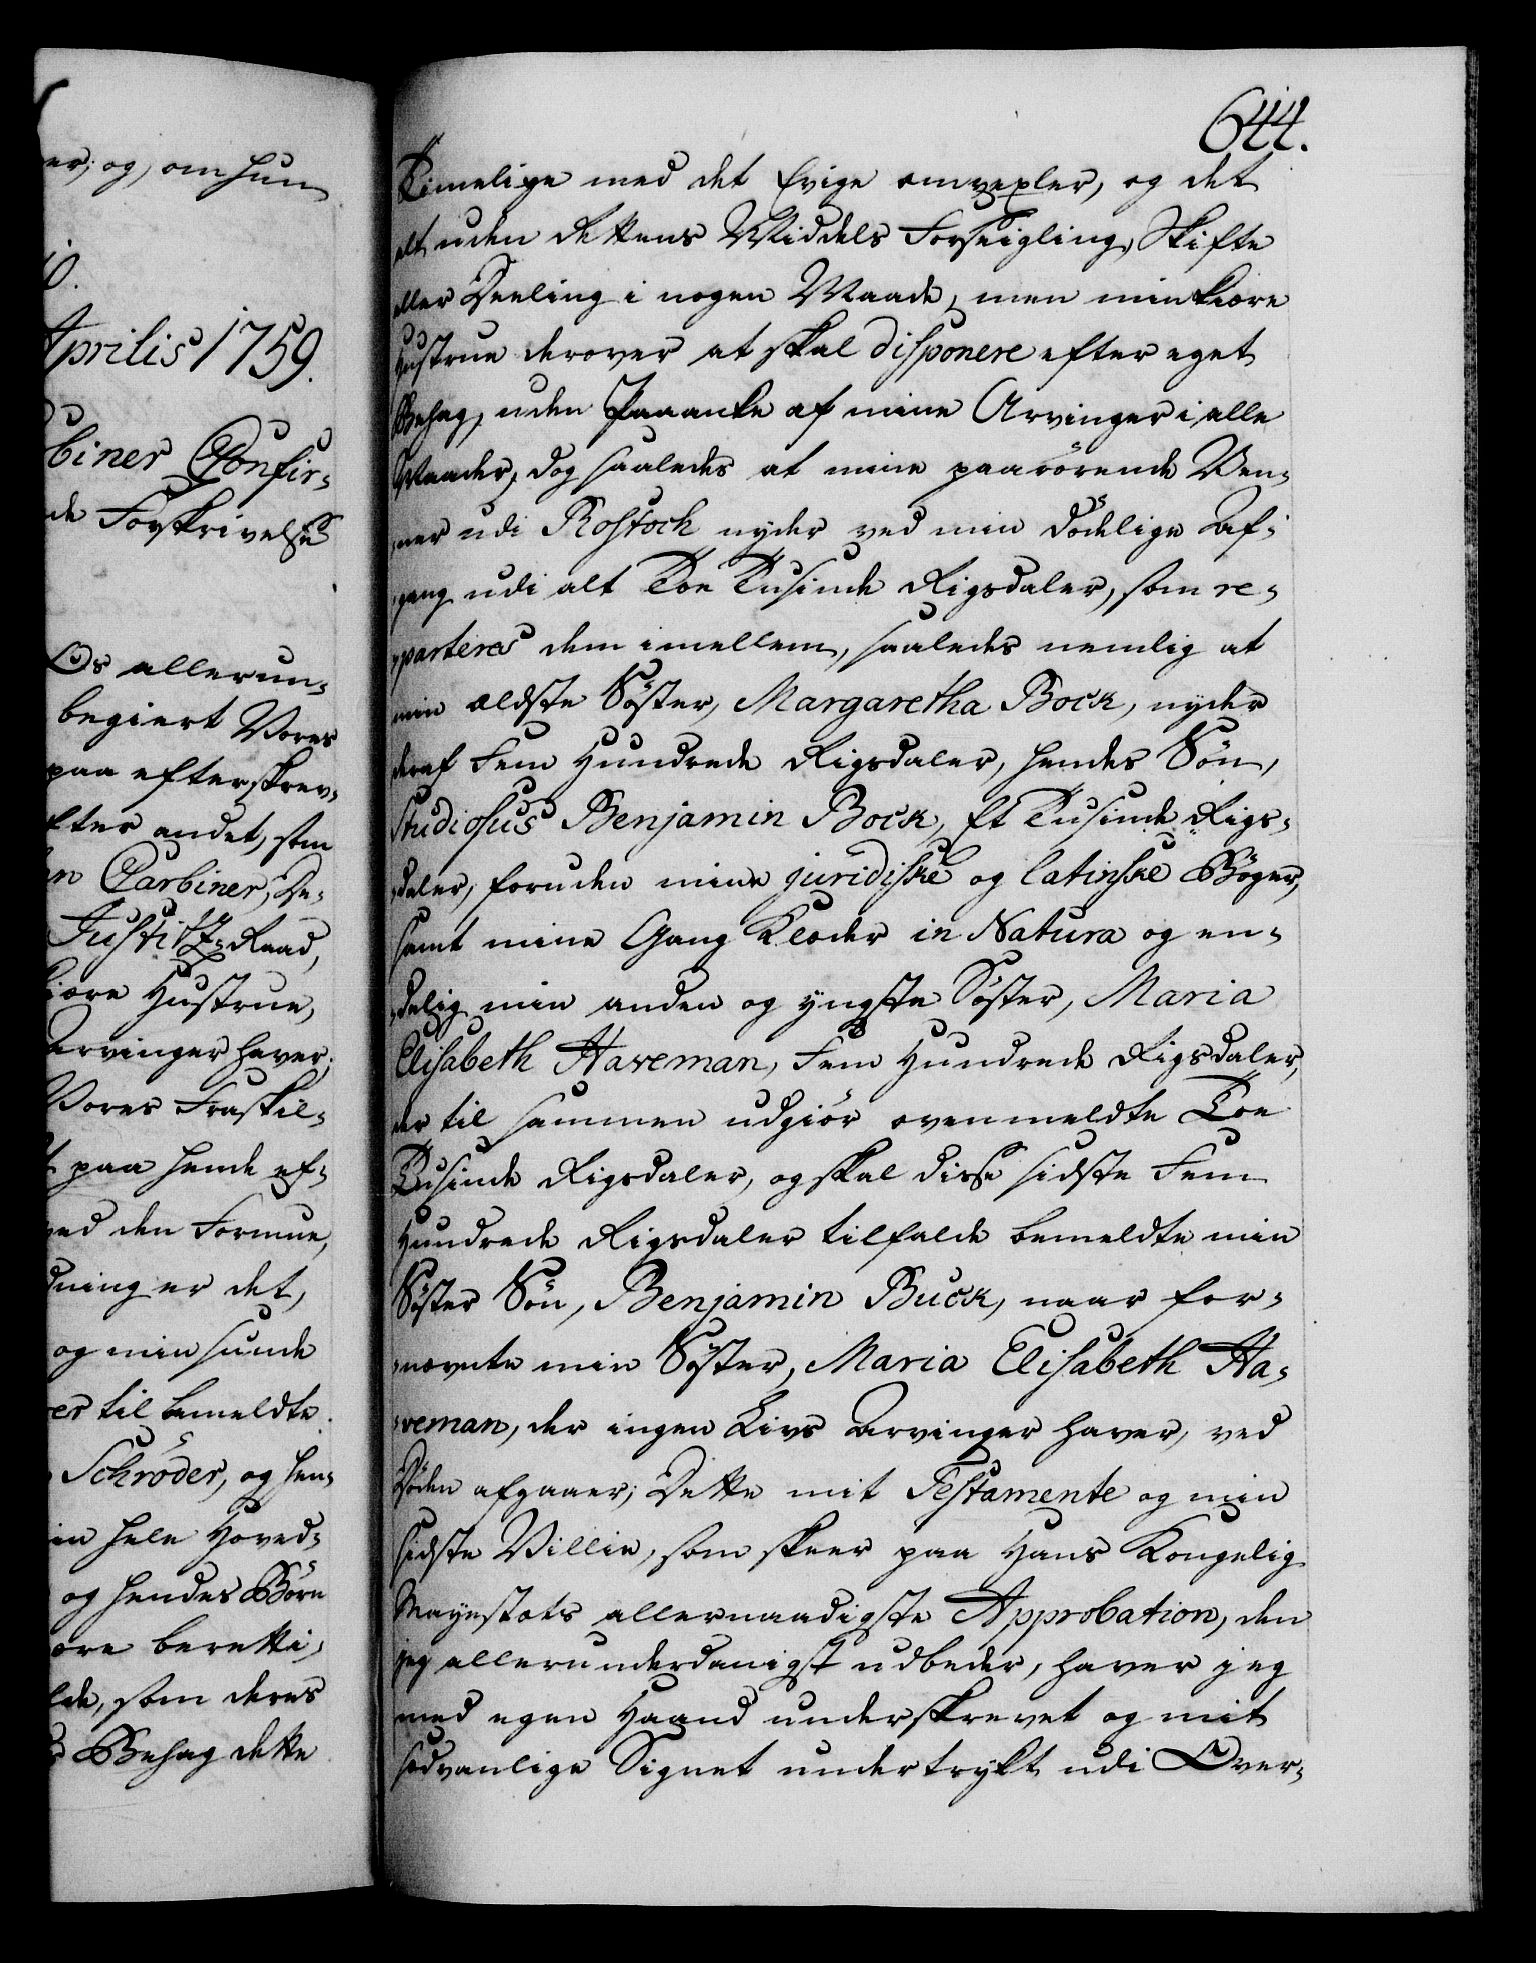 er; og, om hun
10.
Aprilis 1759.
biner Confir-
de Forskrivelse
Os allerun-
begiert Vores
paa efterskrev-
fter andet, som
n Carbiner, De-
Justitz-Raad,
kiære Hustrue,
Arvinger haver;
Vores Fraskil-
t paa hende ef-
ved den Formue,
dning er det,
og min sunde
er til bemeldte
Schrøder, og hen-
in hele Hoved-
og hendes Børn
ære beretti-
lde, som deres
s Behag dette
644.
Timelige med det Evige omvexler, og det
alt uden dettens Middels Forseigling, Skifte
eller Deeling i nogen Maade, men min kiære
Hustrue derover at skal disponere efter eget
Behag, uden Paaanke af mine Arvinger i alle
Maader, dog saaledes at mine paarørende Ven-
ner udi Rostock nyder ved min dødelige Af-
gang udi alt Toe Tusinde Rigsdaler, som re-
parteres dem imellem, saaledes nemlig at
min ældste Søster, Margaretha Bock, nyder
deraf Fem Hundrede Rigsdaler, hendes Søn,
Studiosus Benjamin Bock, Et Tusinde Rigs-
daler, foruden mine juridiske og latinske Bøger,
samt mine Gang Klæder in Natura og en-
delig min anden og yngste Søster, Maria
Elisabeth Haveman, Fem Hundrede Rigsdaler,
der til sammen udgiør ovenmeldte Toe
Tusinde Rigsdaler, og skal disse sidste Fem
Hundrede Rigsdaler tilfalde bemeldte min
Søster Søn, Benjamin Buck, naar for-
nævnte min Søster, Maria Elisabeth Ha-
veman, der ingen Livs Arvinger haver, ved
Døden afgaaer; Dette mit Testamente og min
sidste Villie, som skeer paa Hans Kongelig
Mayestæts allernaadigste Approbation, den
jeg allerunderdanigst udbeder, haver jeg
med egen Haand underskrevet og mit
sædvanlige Signet undertrykt udi Over-